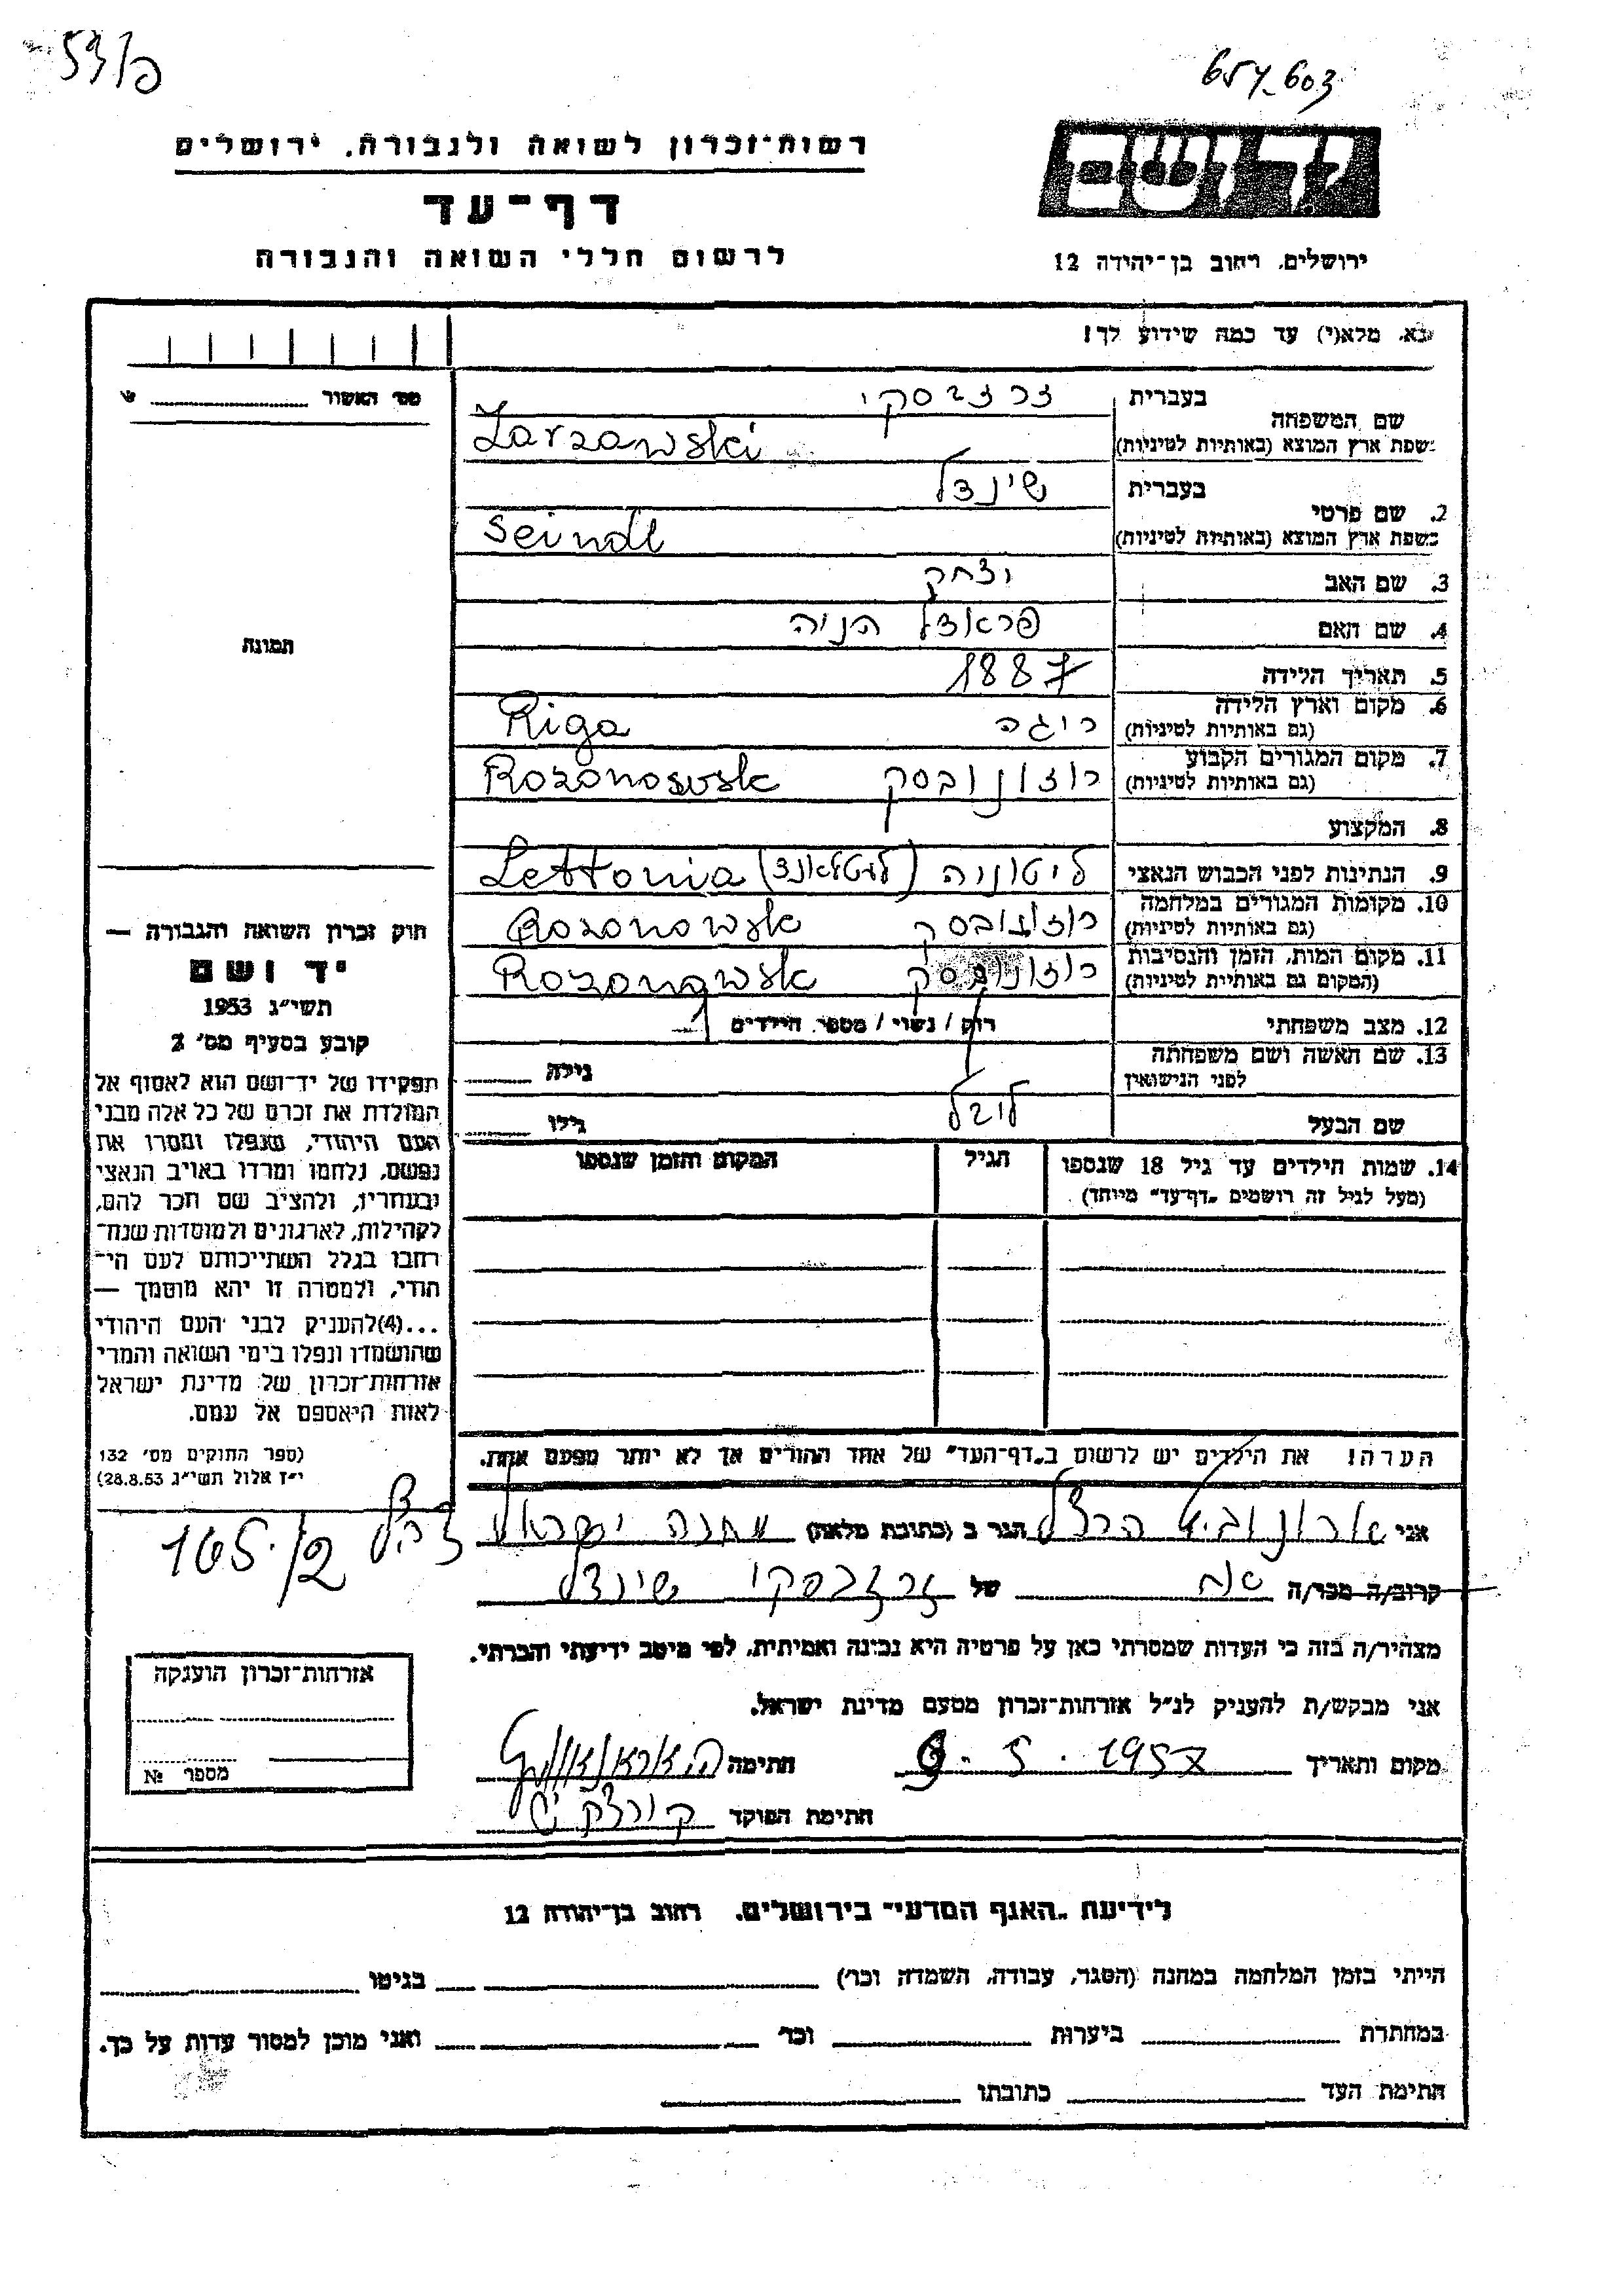 657-603
רשות־זכרון לשואה ולגבורה, ירושלים
דף־עד
לרשום חללי השואה והגבורה
יד ושם
ירושלים, רחוב בן־יהודה 12
נא, מלא(י) עד כמה שידוע לך!
מס׳ האשור
שם המשפחה
בעברית
זרזבסקי
בשפת ארץ המוצא (באותיות לטיניות)
Zarzawski
2. שם פרטי
בעברית
שינדל
בשפת ארץ המוצא (באותיות לטיניות)
Seindl
3. שם האב
יצחק
4. שם האם
פראדל חנה
5. תאריך הלידה
1887
6. מקום וארץ הלידה
(גם באותיות לטיניות)
ריגה Riga
7. מקום המגורים הקבוע
(גם באותיות לטיניות)
רוזונובסק Rozonowsk
8. המקצוע
9. הנתינות לפני הכבוש הנאצי
ליטוניה (לעטלאנד) Lettonia
10. מקומות המגורים במלחמה
(גם באותיות לטיניות)
רוזונובסק Rozonowsk
11. מקום המות, הזמן והנסיבות
(המקום גם באותיות לטיניות)
רוזונובסק Rozonowsk
12. מצב משפחתי
רוק / נשוי / מספר הילדים 1
13. שם האשה ושם משפחתה
לפני הנישואין
גילה
שם הבעל
לובל
גילו
14. שמות הילדים עד גיל 18 שנספו
(מעל לגיל זה רושמים „דף־עד״ מיוחד)
הגיל
המקום והזמן שנספו
הערה! את הילדים יש לרשום ב„דף־העד״ של אחד ההורים אך לא יותר מפעם אחת.
תמונה
חוק זכרון השואה והגבורה —
יד ושם
תשי״ג 1953
קובע בסעיף מס׳ 2
תפקידו של יד־ושם הוא לאסוף אל
המולדת את זכרם של כל אלה מבני
העם היהודי, שנפלו ומסרו את
נפשם, נלחמו ומרדו באויב הנאצי
ובעוזריו, ולהציב שם וזכר להם,
לקהילות, לארגונים ולמוסדות שנח־
רבו בגלל השתייכותם לעם הי־
הודי, ולמטרה זו יהא מוסמך —
...(4)להעניק לבני העם היהודי
שהושמדו ונפלו בימי השואה והמרי
אזרחות־זכרון של מדינת ישראל
לאות היאספם אל עמם.
(ספר החוקים מס׳ 132
י״ז אלול תשי״ג 28.8.53)
אני ארונוביץ הרצל הגר ב (כתובת מלאה) מחנה ישראל
165./2
קרוב/ה מכר/ה אח של זרזבסקי שינדל
מצהיר/ה בזה כי העדות שמסרתי כאן על פרטיה היא נכונה ואמיתית, לפי מיטב ידיעתי והכרתי.
אני מבקש/ת להעניק לנ״ל אזרחות־זכרון מטעם מדינת ישראל.
מקום ותאריך 9.5.1957 חתימה
חתימת הפוקד
אזרחות־זכרון הוענקה
מספר №
לידיעת „האגף המדעי״ בירושלים, רחוב בן־יהודה 12
הייתי בזמן המלחמה במחנה (הסגר, עבודה, השמדה וכר׳) בגיטו
במחתרת ביערות וכר׳ ואני מוכן למסור עדות על כך.
חתימת העד כתובתו